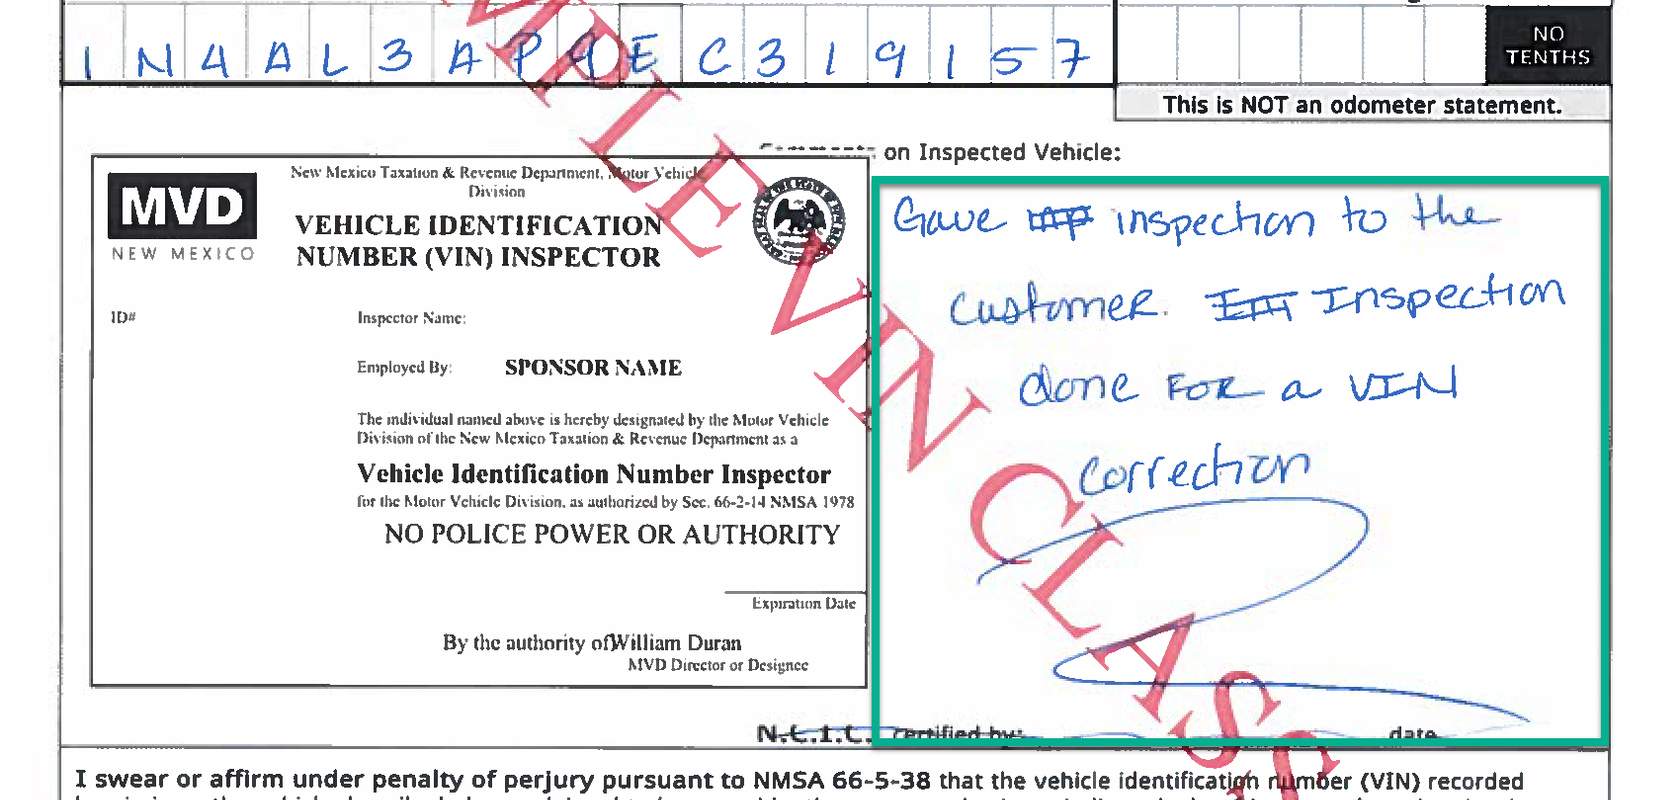 1N4AL3AP4EC319157
NO
TENTHS
This is NOT an odometer statement.
Comments on Inspected Vehicle:
MVD
NEW MEXICO
New Mexico Taxation & Revenue Department, Motor Vehicle
Division
VEHICLE IDENTIFICATION
NUMBER (VIN) INSPECTOR
ID#
Inspector Name:
Employed By: SPONSOR NAME
The individual named above is hereby designated by the Motor Vehicle
Division of the New Mexico Taxation & Revenue Department as a
Vehicle Identification Number Inspector
for the Motor Vehicle Division, as authorized by Sec. 66-2-14 NMSA 1978
NO POLICE POWER OR AUTHORITY
Expiration Date
By the authority of William Duran
MVD Director or Designee
Gave inspection to the
customer. Inspection
done FOR a VIN
correction
N.C.I.C. certified by: date
I swear or affirm under penalty of perjury pursuant to NMSA 66-5-38 that the vehicle identification number (VIN) recorded
MPLE VIN CLASS